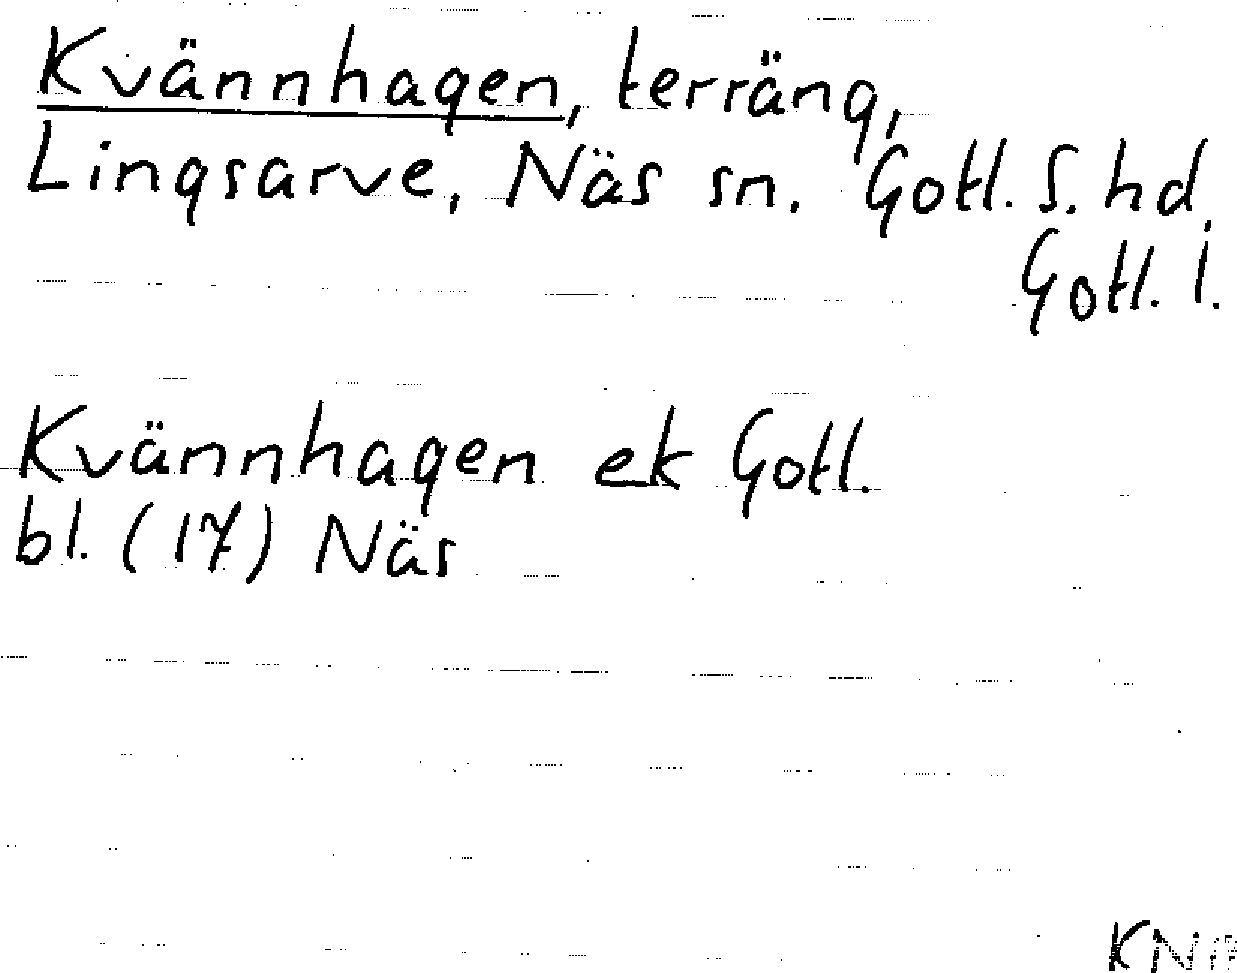 Kvännhagen, terräng,
Lingsarve, Näs sn. Gotl. S. hd.
Gotl. l.
Kvännhagen ek Gotl.
bl. (17) Näs